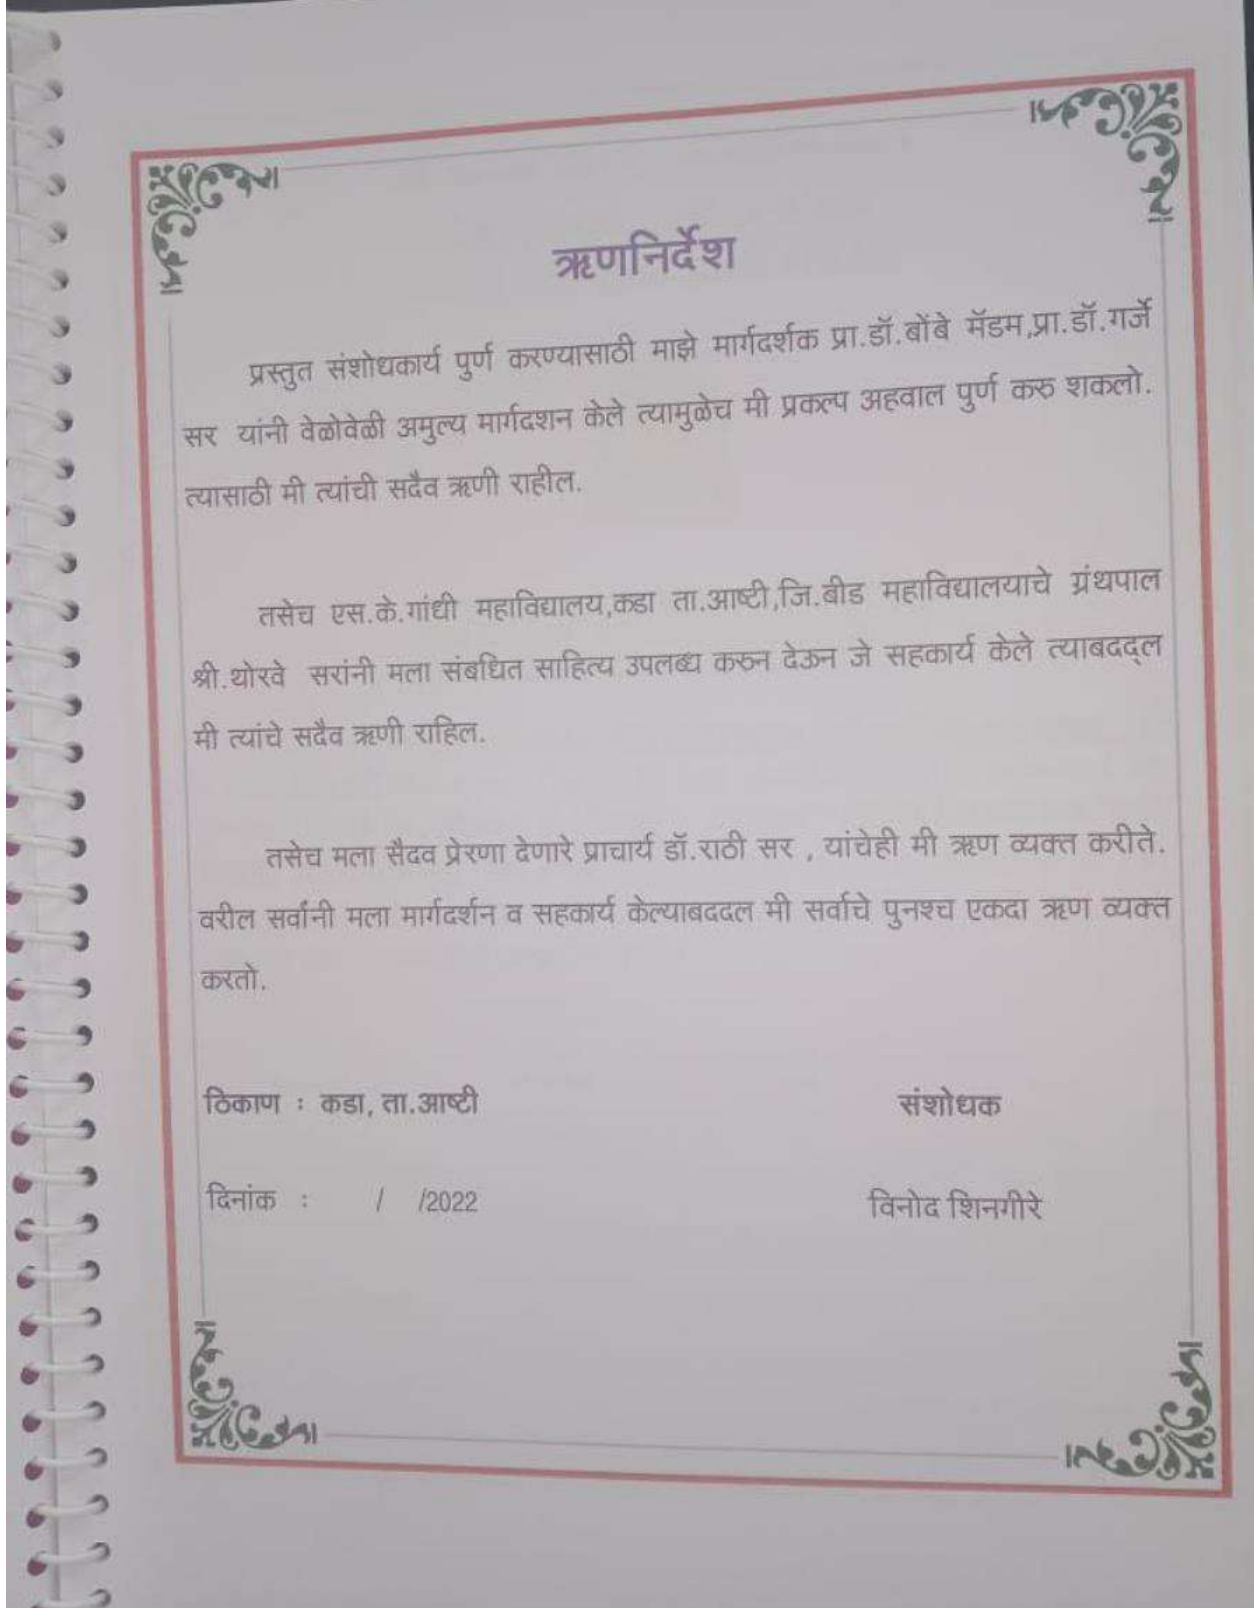 ऋणनिर्देश
प्रस्तुत संशोधकार्य पुर्ण करण्यासाठी माझे मार्गदर्शक प्रा.डॉ.बोंबे मॅडम,प्रा.डॉ.गर्जे
सर यांनी वेळोवेळी अमुल्य मार्गदशन केले त्यामुळेच मी प्रकल्प अहवाल पुर्ण करु शकलो.
त्यासाठी मी त्यांची सदैव ऋणी राहील.
तसेच एस.के.गांधी महाविद्यालय,कडा ता.आष्टी,जि.बीड महाविद्यालयाचे ग्रंथपाल
श्री.थोरवे सरांनी मला संबधित साहित्य उपलब्ध करुन देऊन जे सहकार्य केले त्याबदद्ल
मी त्यांचे सदैव ऋणी राहिल.
तसेच मला सैदव प्रेरणा देणारे प्राचार्य डॉ.राठी सर , यांचेही मी ऋण व्यक्त करीते.
वरील सर्वांनी मला मार्गदर्शन व सहकार्य केल्याबददल मी सर्वाचे पुनश्च एकदा ऋण व्यक्त
करतो.
ठिकाण : कडा, ता.आष्टी संशोधक
दिनांक : / /2022 विनोद शिनगीरे